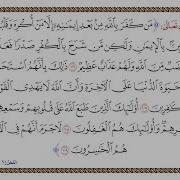 تعالى: ﴿مَن كَفَرَ بِٱللَّهِ مِنۢ بَعْدِ إِيمَـٰنِهِۦٓ إِلَّا مَنْ أُكْرِهَ وَقَ
بِٱلْإِيمَـٰنِ وَلَـٰكِن مَّن شَرَحَ بِٱلْكُفْرِ صَدْرًا فَعَ
ـبٌ مِّنَ ٱللَّهِ وَلَهُمْ عَذَابٌ عَظِيمٌ ١٠٦ ذَٰلِكَ بِأَنَّهُمُ ٱسْتَـ
ـيَوٰةَ ٱلدُّنْيَا عَلَى ٱلْـَٔاخِرَةِ وَأَنَّ ٱللَّهَ لَا يَهْدِى ٱلْقَوْ
ـرِينَ ١٠٧ أُو۟لَـٰٓئِكَ ٱلَّذِينَ طَبَعَ ٱللَّهُ عَلَىٰ قُلُوبِهِمْ وَسَمْعِهِ
ـرِهِمْ وَأُو۟لَـٰٓئِكَ هُمُ ٱلْغَـٰفِلُونَ ١٠٨ لَا جَرَمَ أَنَّهُمْ فِى ٱلْـَٔ
هُمُ ٱلْخَـٰسِرُونَ ١٠٩﴾ [النحل: